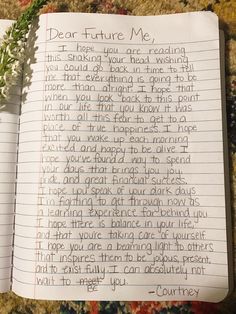 Dear Future Me,
I hope you are reading
this shaking your head wishing
you could go back in time to tell
me that everything is going to be
more than alright. I hope that
when you look back to this point
in our life that you know it was
worth all this fear to get to a
place of true happiness. I hope
that you wake up each morning
excited and happy to be alive. I
hope you've found a way to spend
your days that brings you joy,
and great financial success.
I hope you speak of your dark days
I'm fighting to get through now as
a learning experience far behind you.
I hope there is balance in your life,
and that you're taking care of yourself.
I hope you are a beaming light to others
that inspires them to be joyous, present,
and to exist fully. I can absolutely not
wait to meet you.
BE
-Courtney